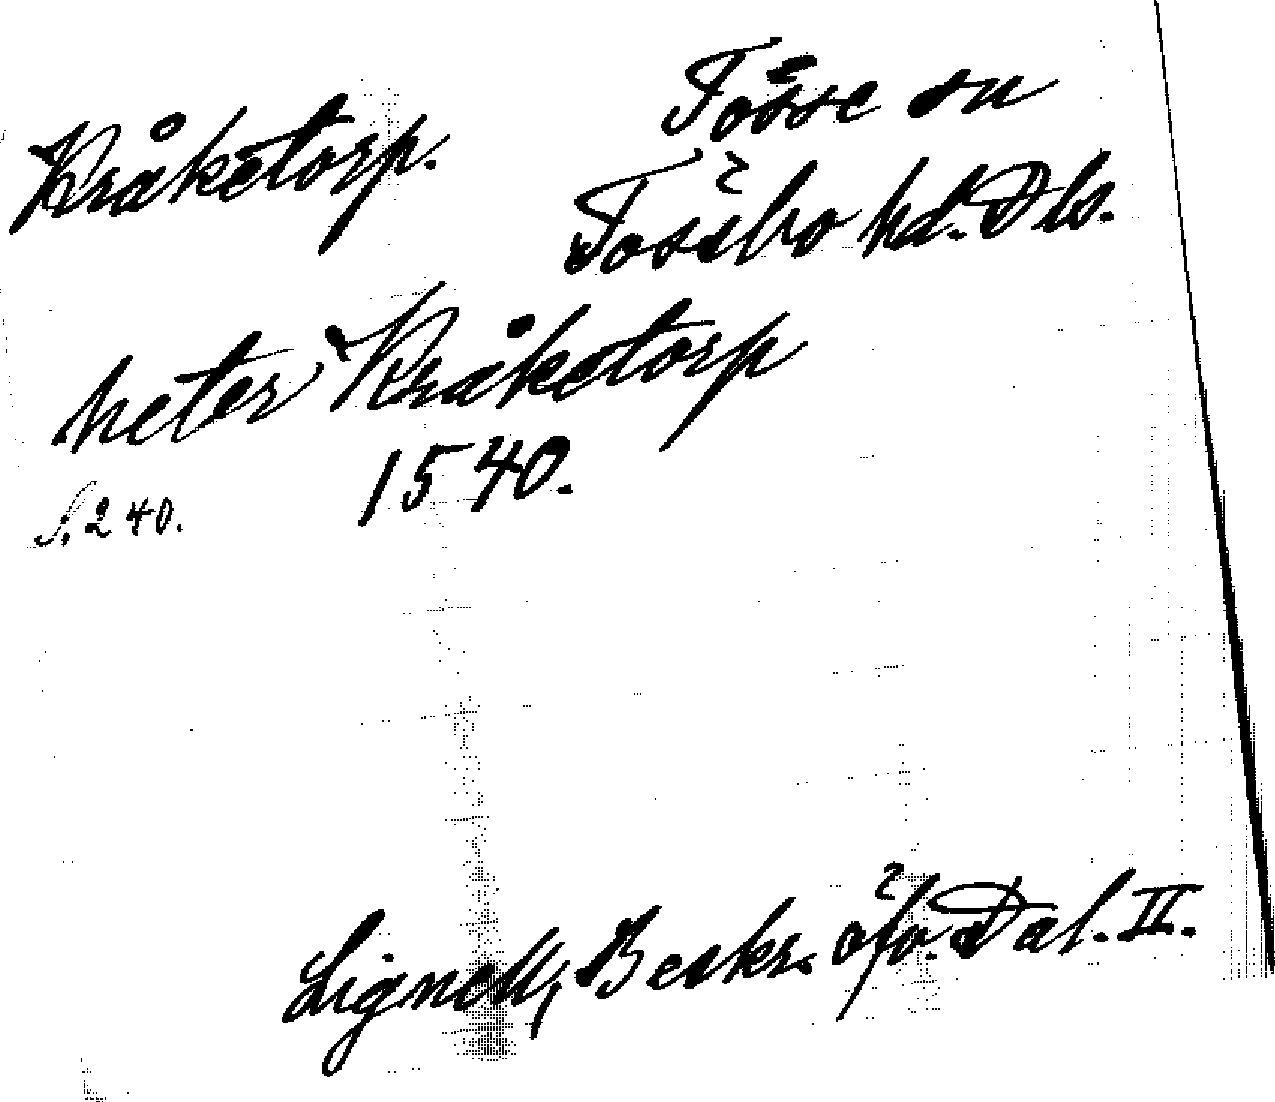 Kråketorp.
Tösse sn
Tössbo hd. Dls.
heter Kråketorp
1540.
S. 240.
Lignell, Beskr. öfv. Dal. II.